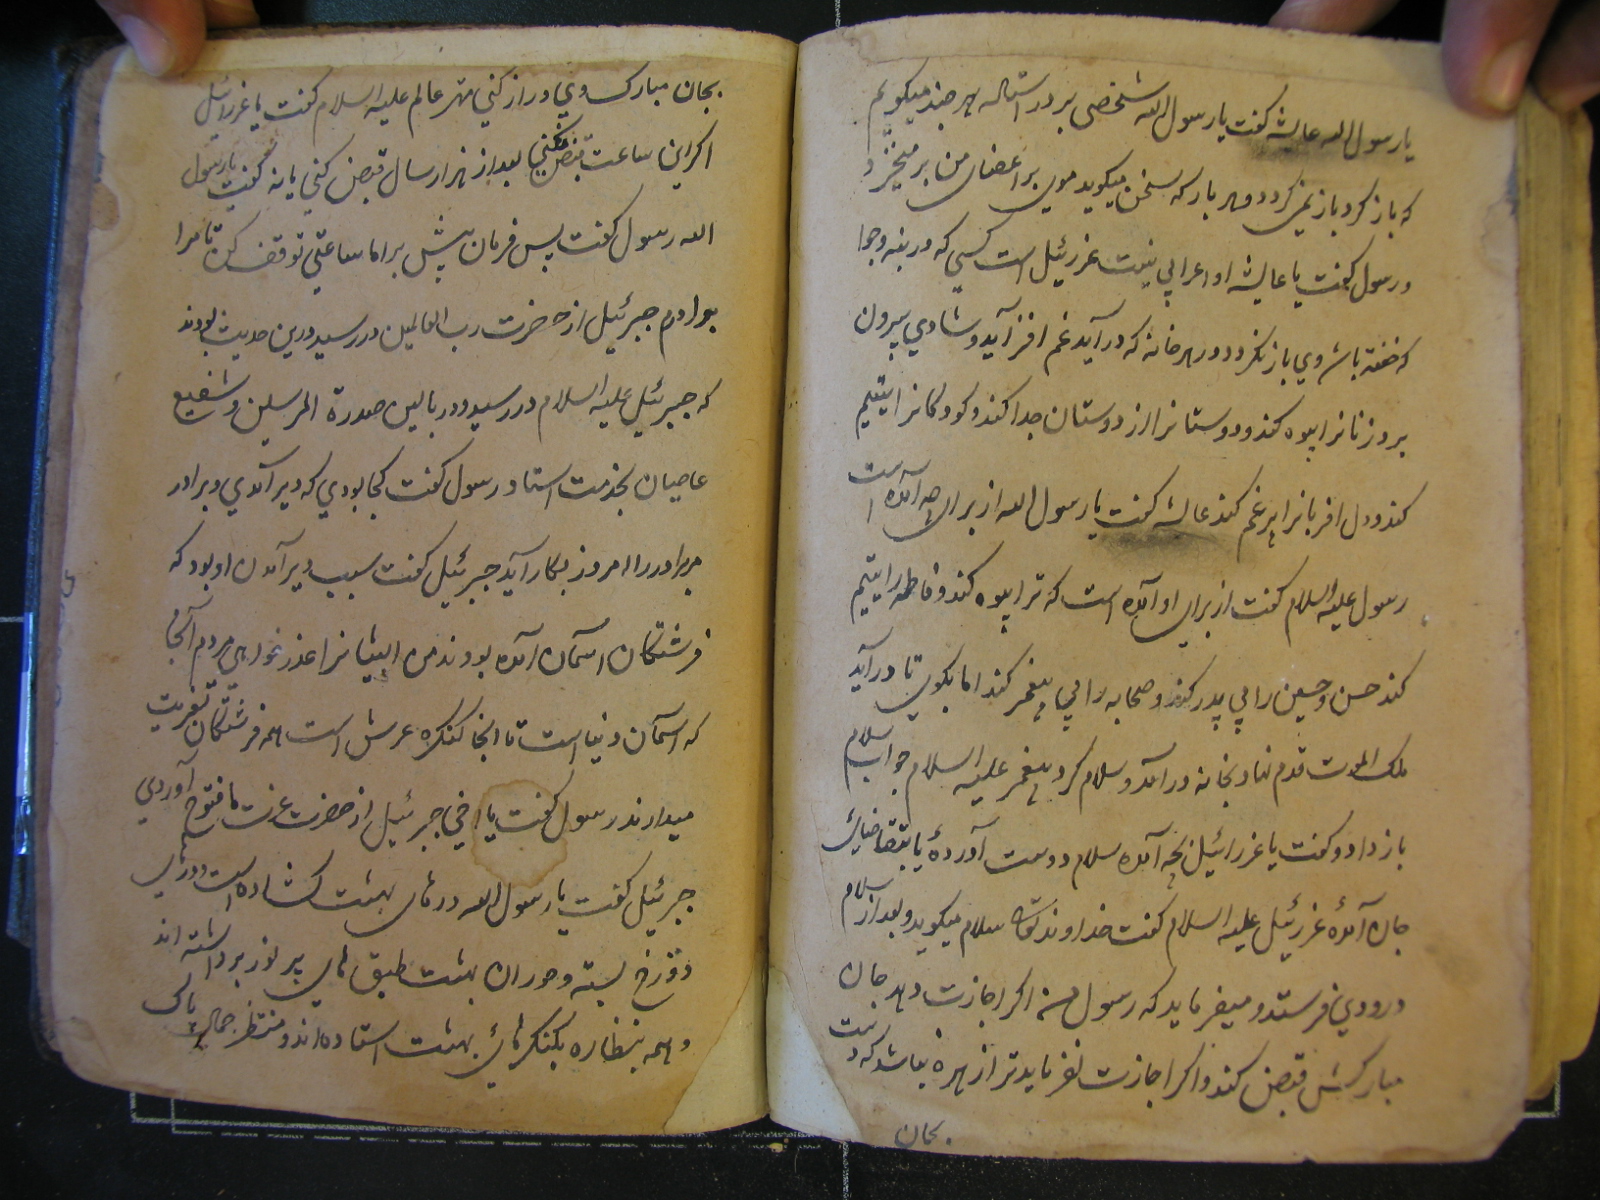 یارسول الله عایشه گفت یارسول الله شخصی بر در استاله هر چند میکویم
که باز کرد باز نمی کردد و هر بار که سخن میکوید موی بر اعضای من بر میخیزد
ورسول گفت یا عایشه او اعرابی نیست عزرئیل است کسی که در بنه وجوا
که خفته باشد وی باز نکردد و در هر خانه که در آید غم افزاید و شادی بیرون
برد زنانرا بیوه کند و دوستانرا از دوستان جدا کند و کودکانرا یتیم
کند و دل اقربانرا پر غم کند عایشه گفت یارسول الله از برای چه آمده است
رسول علیه السلام گفت از برای او آمده است که ترا بیوه کند و فاطمه را یتیم
کند حسن و حسین را بی پدر کند و صحابه را بی پیغمبر کند اما بکوی تا در آید
ملک الموت قدم نهاد بخانه در آمد و سلام کرد پیغمبر علیه السلام جواب سلام
باز داد و گفت یا عزرائیل بچه آمده سلام دوست آوردهٔ یا بتقاضای
جان آمدهٔ عزرئیل علیه السلام گفت خداوند تعالی سلام میکوید و بعد از سلام
درودی فرستد و میفرماید که رسول من اکر اجازت دهد جان
مبارکش قبض کند و اکر اجازت نفرماید ترا زهره نباشد که دست
بجان
بجان مبارک وی دراز کنی مهتر عالم علیه السلام گفت یا عزرائیل
اکر این ساعت قبض نکنی بعد از هزار سال قبض کنی یا نه گفت یارسول
الله رسول گفت پس فرمان پیش بر اما ساعتی توقف کن تا مرا
برادرم جبرئیل از حضرت رب العالمین در رسید درین حدیث بودند
که جبرئیل علیه السلام در رسید و در بالین صدرة المرسلین و شفیع
عاصیان بخدمت استاد رسول گفت کجا بودی که دیر آمدی و برادر
مر برادر را امروز بکار آید جبرئیل گفت سبب دیر آمدن او بود که
فرشتکان آسمان آمده بودند من ایشانرا عذر خواهی مردم آنجا
که آسمان دنیا است تا انجا کنکره عرش است همه فرشتکان تعزیت
میدارند رسول گفت یا اخی جبرئیل از حضرت عزت ما فتوح آوردی
جبرئیل گفت یارسول الله درهای بهشت کشاده است و درهای
دوزخ بسته و حوران بهشت طبق های پر نور برداشته اند
و همه بنظاره بکنکرهای بهشت استاده اند و منتظر جمال پاک